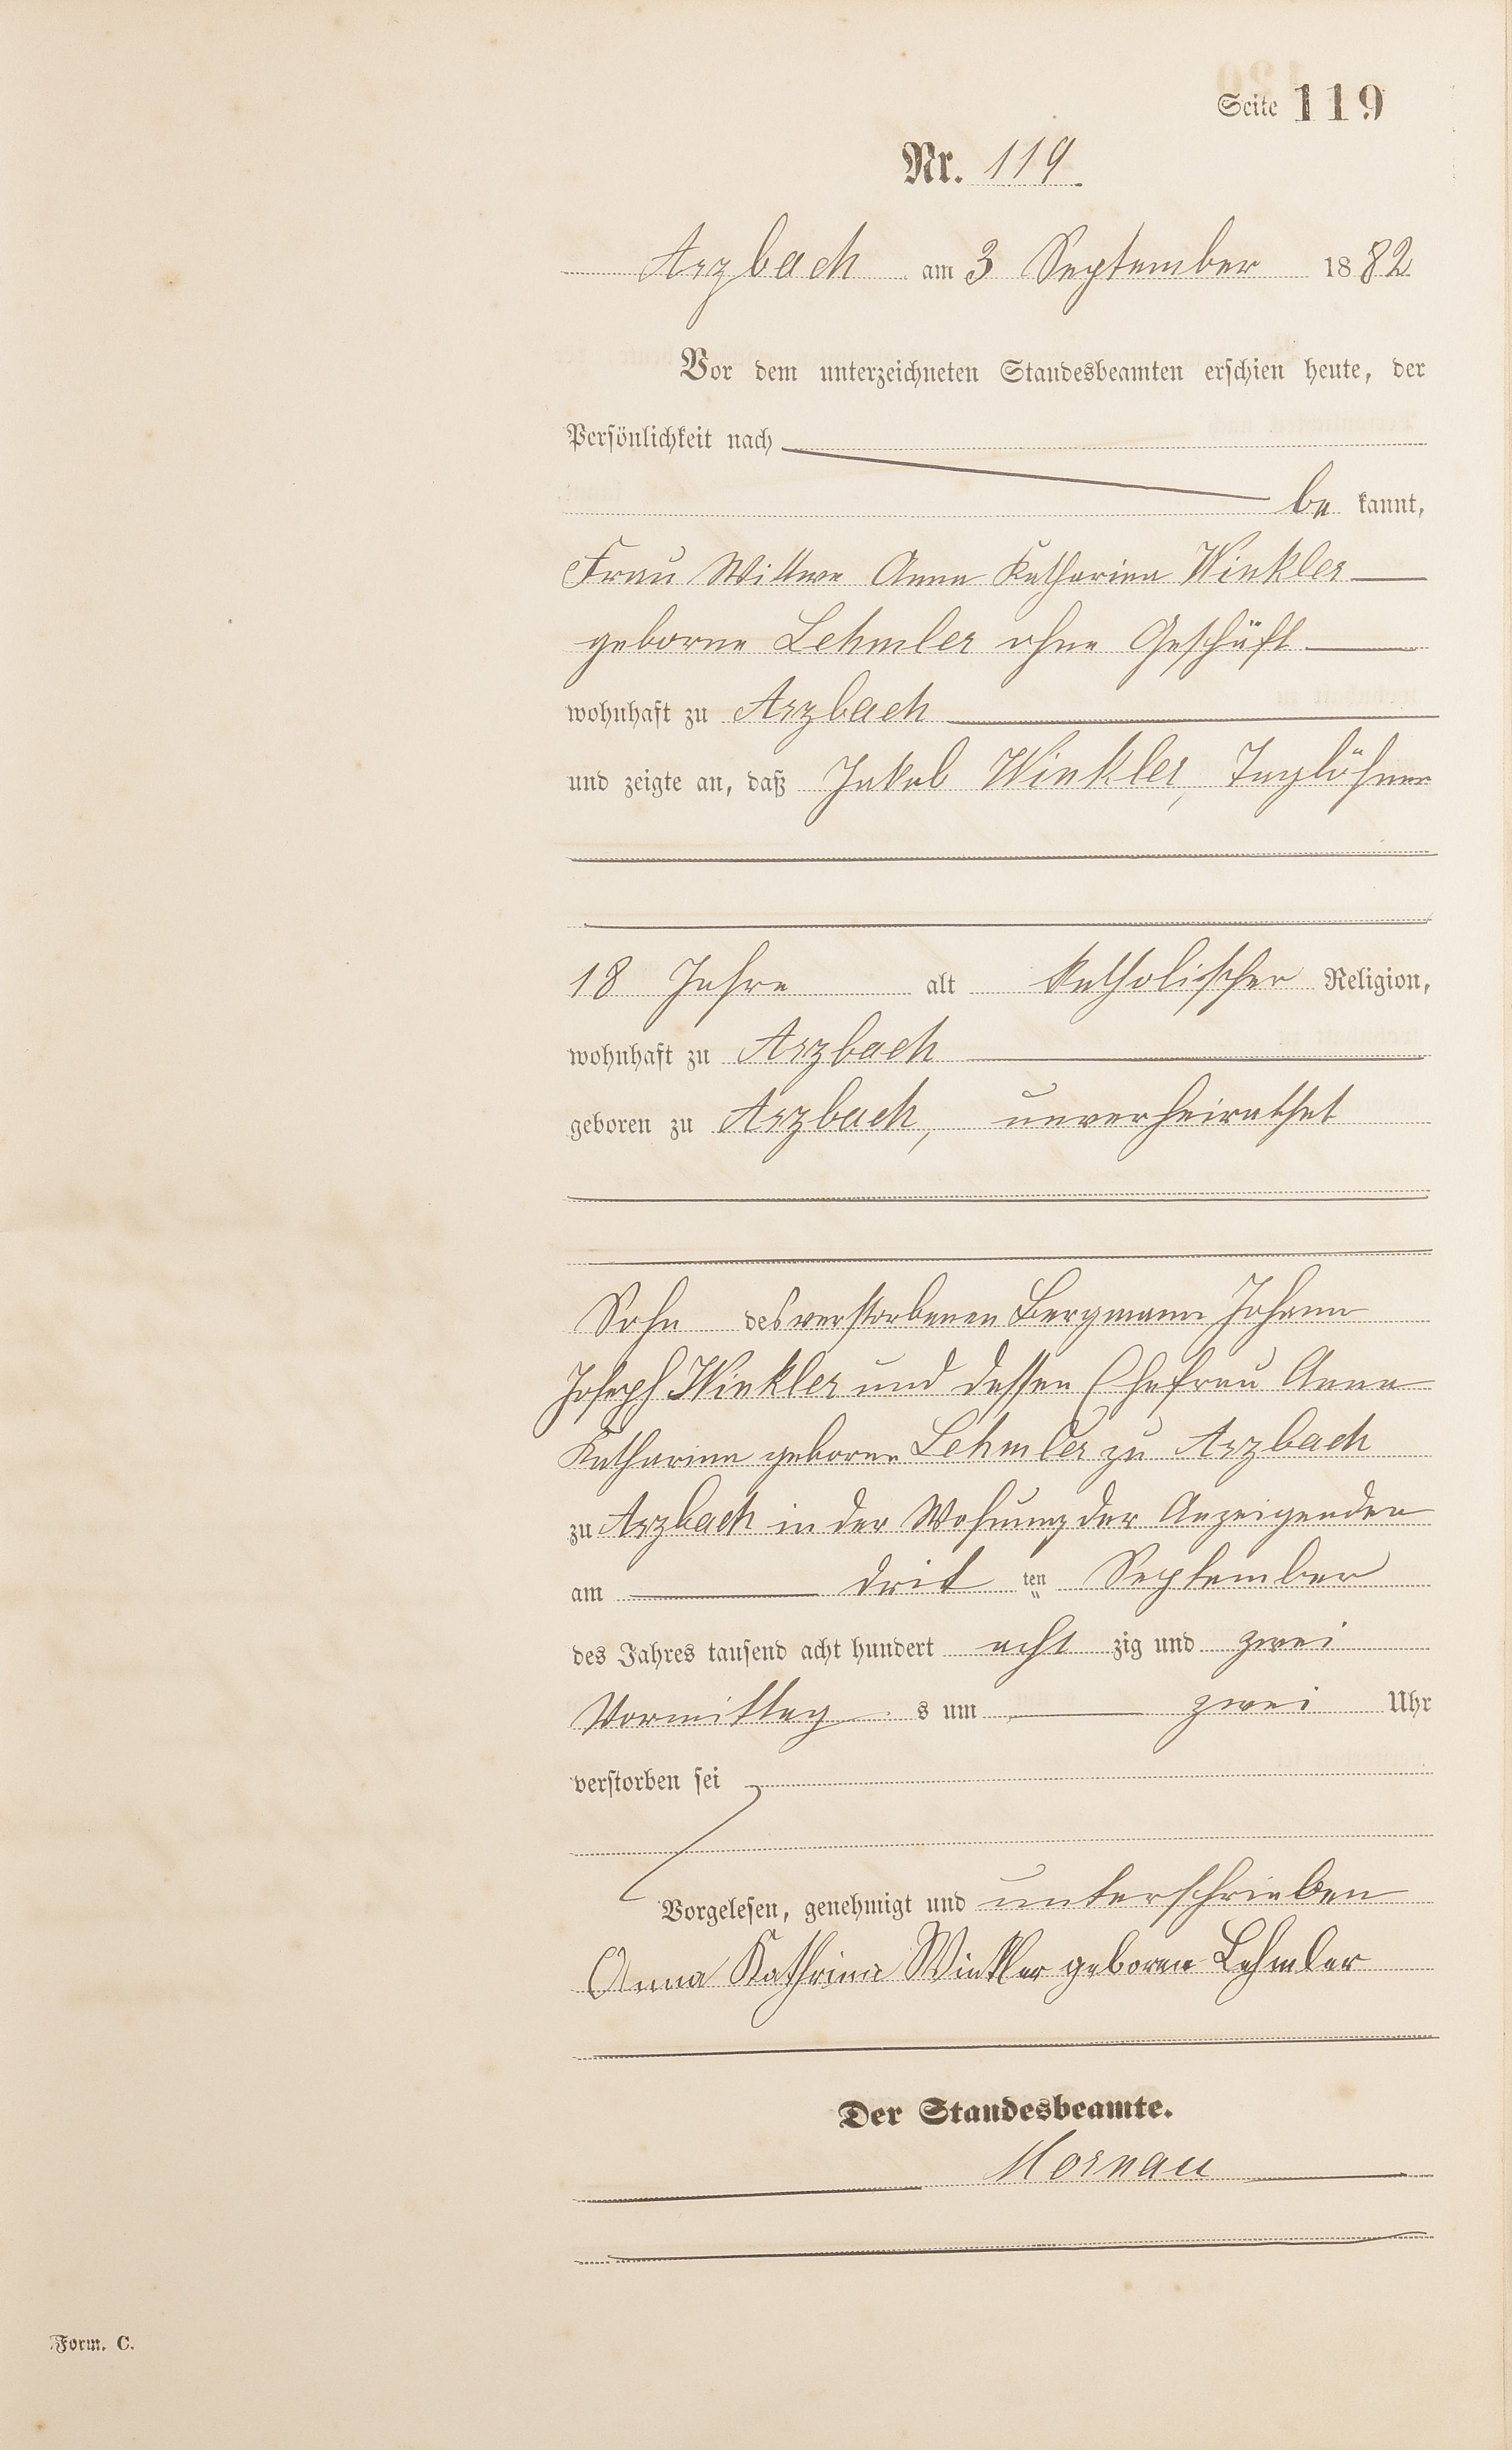 Seite 119
Nr. 119.
Arzbach am 3 September 1882
Vor dem unterzeichneten Standesbeamten erschien heute, der
Persönlichkeit nach
be kannt,
Frau Wittwe Anna Katharina Winkler
geborne Lehmler ohne Geschäft
wohnhaft zu Arzbach
und zeigte an, daß Jakob Winkler, Taglöhner
18 Jahre alt katholischer Religion,
wohnhaft zu Arzbach
geboren zu Arzbach, unverheirathet
Sohn des verstorbenen Bergmann Johann
Joseph Winkler und dessen Ehefrau Anna
Katharina geborne Lehmler zu Arzbach
zu Arzbach in der Wohnung der Anzeigenden
am drit ten September
des Jahres tausend acht hundert acht zig und zwei
Vormittag s um zwei Uhr
verstorben sei
Vorgelesen, genehmigt und unterschrieben
Anna Kathrina Winkler geborne Lehmler
Der Standesbeamte.
Mornau
Form. C.